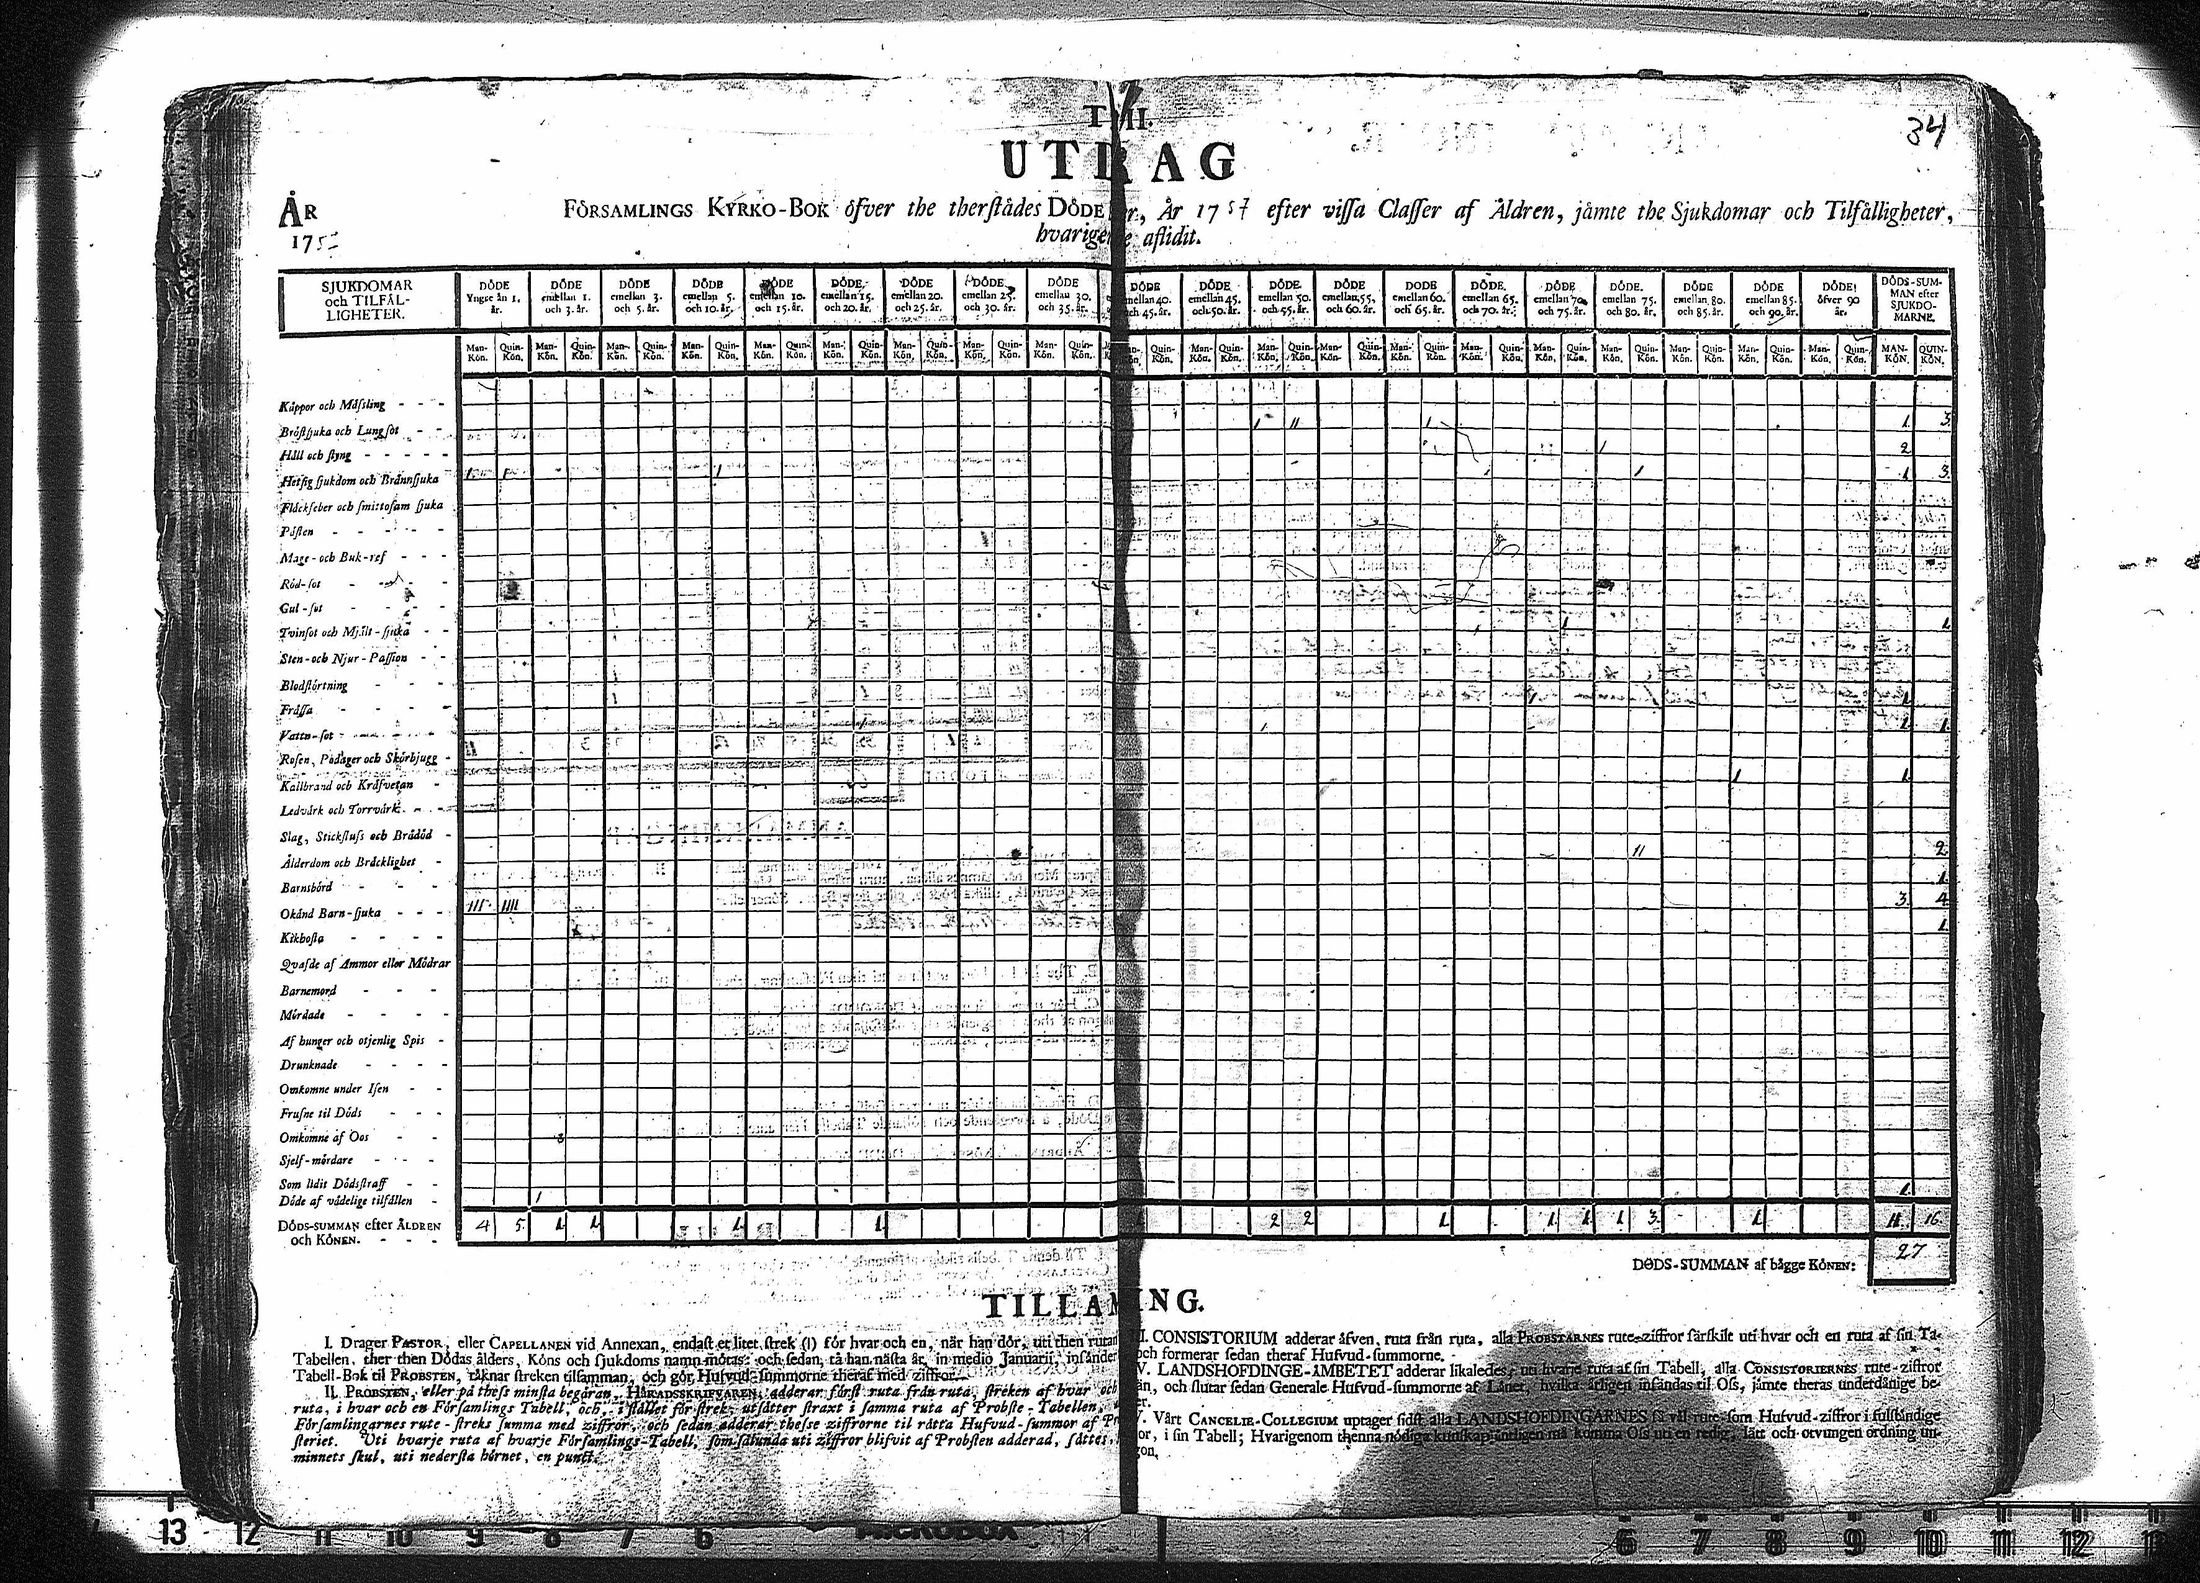 34
T II.
UTDRAG
ÅR
FÖRSAMLINGS KYRKO-BOK öfver the therstådes DÖDE År 17 efter vissa Classer af Åldren, jämte the Sjukdomar och Tilfälligheter,
17
aflidit.
SJUKDOMAR och TILFÄL-LIGHETER.
DÖDE Yngre än 1. år.
DÖDE emellan 1. och 3. år.
DÖDE emellan 3. och 5. år.
DÖDE emellan 5. och 10. år.
DÖDE emellan 10. och 15. år.
DÖDE emellan 15. och 20. år.
DÖDE emellan 20. och 25. år.
DÖDE emellan 25. och 30. år.
DÖDE emellan 30. och 35. år.
DÖDE emellan 40. och 45. år.
DÖDE emellan 45. och 50. år.
DÖDE emellan 50. och 55. år.
DÖDE emellan 55. och 60. år.
DÖDE emellan 60. och 65. år.
DÖDE emellan 65. och 70. år.
DÖDE emellan 70. och 75. år.
DÖDE emellan 75. och 80. år.
DÖDE emellan 80. och 85. år.
DÖDE emellan 85. och 90. år.
DÖDE öfver 90 år.
DÖDS-SUM-MAN efter SJUKDO-MARNE.
Man-Kön. Quin-Kön.
Kåppor och Måssling
Bröstsjuka och Lungsot 1 11 1 1. 3.
Håll och styng 1 2
Hetsig sjukdom och Brännsjuka 1. 1 1 1 1 3.
Fläckfeber och smittosam sjuka
Pästen
Mage- och Buk-ref
Röd-sot
Gul-sot
Tvinsot och Mjält-sjuka 1 1.
Sten- och Njur-Passion
Blodstörtning
Frässa 1 1.
Vattu-sot 1 1. 1.
Rosen, Podager och Skörbjugg
Kallbrand och Kräfvetan 1 1.
Ledvärk och Torrvärk.
Slag, Stickfluss och Brådöd
Ålderdom och Bräcklighet 11 2.
Barnsbörd 1.
Okänd Barn-sjuka 111 1111 3. 4.
Kikhosta 1.
Qvafde af Ammor eller Mödrar
Barnemord
Mördade
Af hunger och otjenlig Spis
Drunknade
Omkomne under Isen
Frusne til Döds
Omkomne af Oos
Sjelf-mördare
Som lidit Dödsstraff
Döde af vådelige tilfällen 1 1.
DÖDS-SUMMAN efter ÅLDREN och KÖNEN. 4 5. 1. 1. 1. 1. 1. 2 2 1. 1. 1. 1 3. 1. 11. 16.
DÖDS-SUMMAN af bägge KÖNEN: 27
I. Drager PASTOR, eller CAPELLANEN vid Annexan, endast et litet strek (|) för hvar och en, när han dör, uti then rutan
Tabellen, ther then Dödas ålders, Köns och sjukdoms namn mötas: och sedan, tå han nästa år, in medio Januarii, insänder
Tabell-Bok til PROBSTEN, räknar streken tilsamman, och gör Hufvud-summorne theraf med ziffror.
II. PROBSTEN, eller på thess minsta begäran, HÄRADSSKRIFVAREN, adderar först ruta från ruta, streken af hvar och
ruta, i hvar och en Församlings Tabell, och, i stället för strek, utsätter straxt i samma ruta af Probste-Tabellen,
Församlingarnes rute-streks summa med ziffror, och sedan adderar thesse ziffrorne til rätta Hufvud-summor af
steriet. Uti hvarje ruta af hvarje Församlings-Tabell, som sålunda uti ziffror blifvit af Probsten adderad, sättes,
minnets skul, uti nedersta hörnet, en punct.
CONSISTORIUM adderar äfven, ruta från ruta, alla PROBSTARNES rute-ziffror särskilt uti hvar och en ruta af sin Ta-
och formerar sedan theraf Hufvud-summorne.
LANDSHÖFDINGE-ÄMBETET adderar likaledes, uti hvarje ruta af sin Tabell, alla CONSISTORIERNES rute-ziffror
och slutar sedan Generale Hufvud-summorne af Länet, hvilka årligen insändas til Oss, jämte theras underdånige be-
Vårt CANCELIE-COLLEGIUM uptager sidst alla LANDSHÖFDINGARNES så väl rute- som Hufvud-ziffror i fullständige
i sin Tabell; Hvarigenom thenna nödiga kunskap äntligen må komma Oss uti en redig, lätt och otvungen ordning un-
13 12 11 10 9 8 7 6
6 7 8 9 10 11 12 13